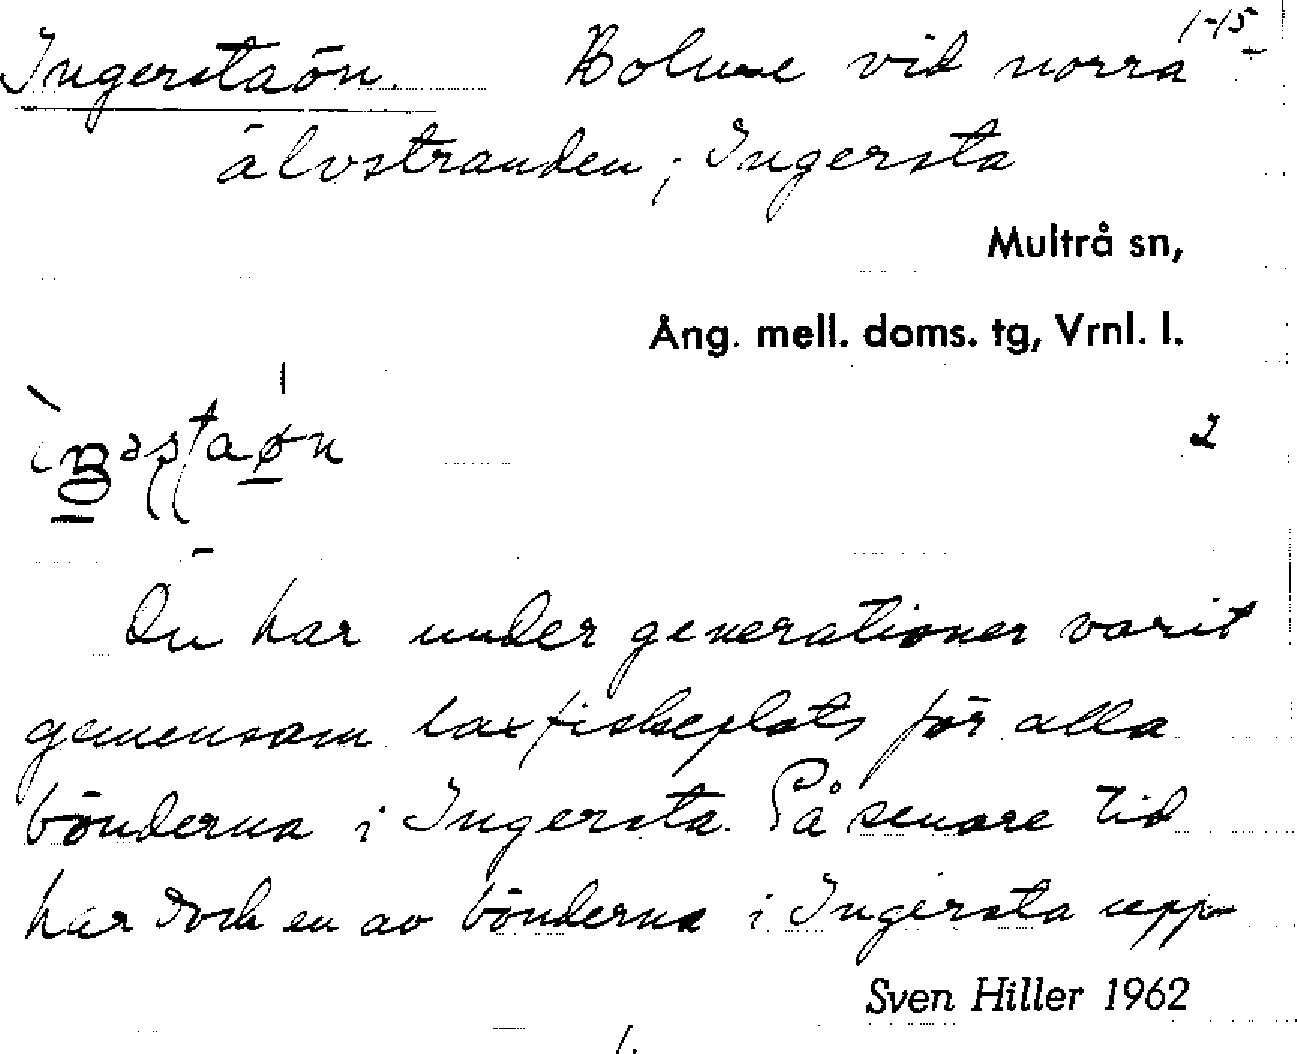 1-15
Ingerstaön. Holme vid norra
älvstranden; Ingersta
Multrå sn,
Ång. mell. doms. tg, Vrnl. l.
2
Ön har under generationer varit
gemensam laxfiskeplats för alla
bönderna i Ingersta. På senare tid
har dock en av bönderna i Ingersta upp-
Sven Hiller 1962